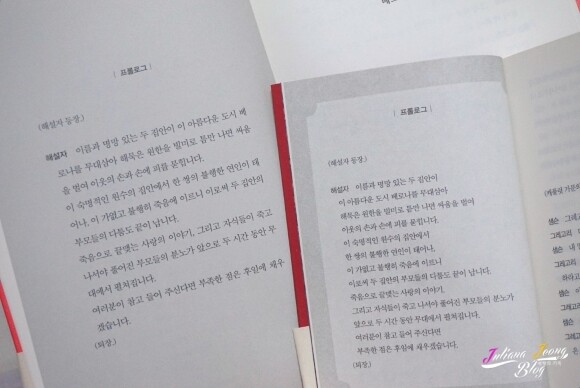 | 프롤로그 |
(해설자 등장.)
해설자 이름과 명망 있는 두 집안이 이 아름다운 도시 베
로나를 무대삼아 해묵은 원한을 빌미로 틈만 나면 싸움
을 벌여 이웃의 손과 손에 피를 묻힙니다.
이 숙명적인 원수의 집안에서 한 쌍의 불행한 연인이 태
어나, 이 가엾고 불행히 죽음에 이르니 이로써 두 집안의
부모들의 다툼도 끝이 납니다.
죽음으로 끝맺는 사랑의 이야기, 그리고 자식들이 죽고
나서야 풀어진 부모들의 분노가 앞으로 두 시간 동안 무
대에서 펼쳐집니다.
여러분이 참고 들어 주신다면 부족한 점은 후일에 채우
겠습니다.
(퇴장.)
| 프롤로그 |
(해설자 등장.)
해설자 이름과 명망 있는 두 집안이
이 아름다운 도시 베로나를 무대삼아
해묵은 원한을 빌미로 틈만 나면 싸움을 벌여
이웃의 손과 손에 피를 묻힙니다.
이 숙명적인 원수의 집안에서
한 쌍의 불행한 연인이 태어나,
이 가엾고 불행히 죽음에 이르니
이로써 두 집안의 부모들의 다툼도 끝이 납니다.
죽음으로 끝맺는 사랑의 이야기,
그리고 자식들이 죽고 나서야 풀어진 부모들의 분노가
앞으로 두 시간 동안 무대에서 펼쳐집니다.
여러분이 참고 들어 주신다면
부족한 점은 후일에 채우겠습니다.
(퇴장.)
샘슨
그레고리
샘슨
그레고리
샘슨
그레고리
Juliana Jeong
Blog